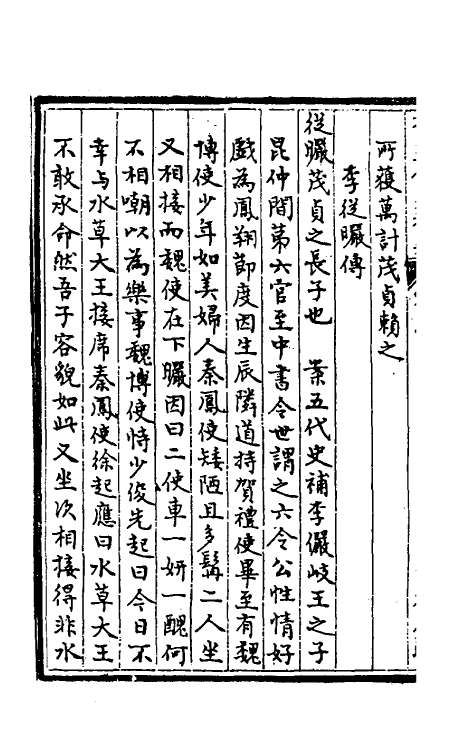 所獲萬計茂貞賴之
李從曮傳
從曮茂貞之長子也　案五代史補李儼岐王之子
昆仲間第六官至中書令世謂之六令公性情好
戲為鳳翔節度因生辰隣道持賀禮使畢至有魏
博使少年如美婦人秦鳳使矮陋且多髯二人坐
又相接而魏使在下曮因曰二使車一妍一醜何
不相嘲以為樂事魏博使恃少俊先起曰今日不
幸与水草大王接席秦鳳使徐起應曰水草大王
不敢承命然吾子容貌如此又坐次相接得非水